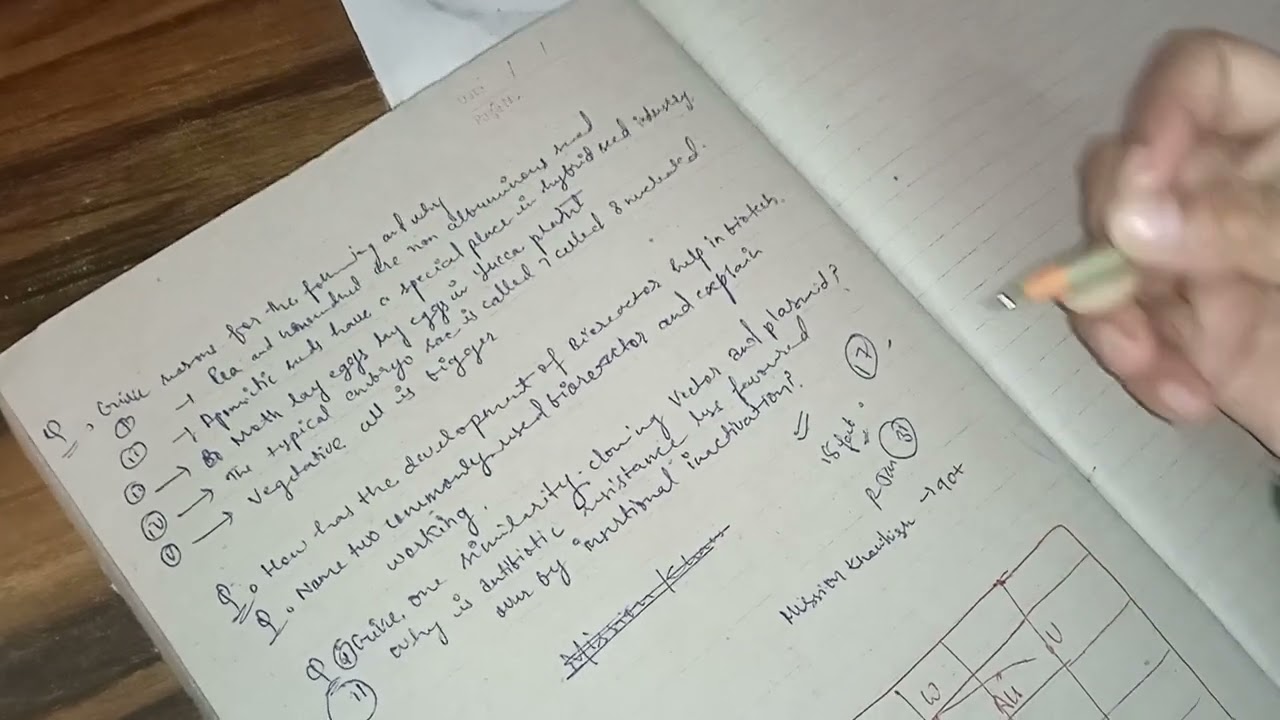 Q. Give reasons for the following and why
(i) → Pea and are non albuminous seed
(ii) → Apomitic seeds have a special place in hybrid seed industry
(iii) → Moth lay eggs in Yucca plant
(iv) → The typical embryo sac is called 7 celled 8 nucleated.
(v) → Vegetative cell is bigger
Q. How has the development of Bioreactor help in biotech.
Q. Name two commonly used bioreactor and explain
working.
Q (i) Give one similarity cloning Vector and plasmid?
(ii) Why is antibiotic resistance less favoured
over by insertional inactivation?
Mission
17
18
Mission Knowledge →
W
U